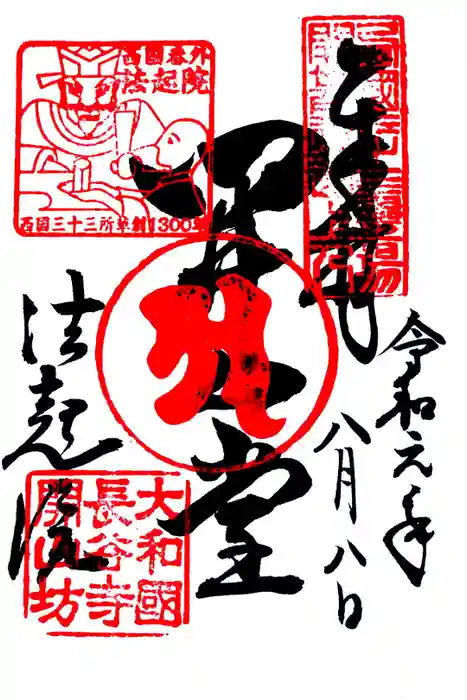 奉拝
令和元年
八月八日
開山堂
法起院
西國番外
法起院
西国三十三所草創1300年
大和國
長谷寺
開山坊